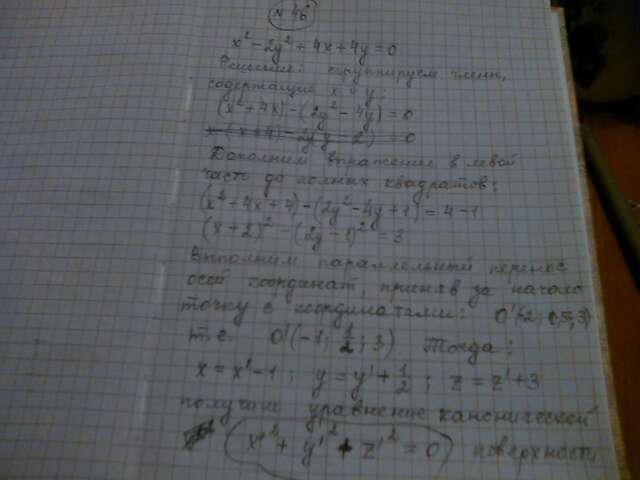 № 46
x² - 2y² + 4x + 4y = 0
Решение: сгруппируем члены,
содержащие x и y:
(x² + 4x) - (2y² - 4y) = 0
Дополним выражения в левой
части до полных квадратов:
(x² + 4x + 4) - (2y² - 4y + 1) = 4 - 1
(x + 2)² - (2y - 1)² = 3
Выполним параллельный перенос
осей координат, приняв за начало
точку с координатами: O'(-2; 0,5; 3)
т.е. O'(-1; 1/2; 3) Тогда:
x = x' - 1; y = y' + 1/2; z = z' + 3
получим уравнение канонической
x'² + y'² + z'² = 0 поверхности